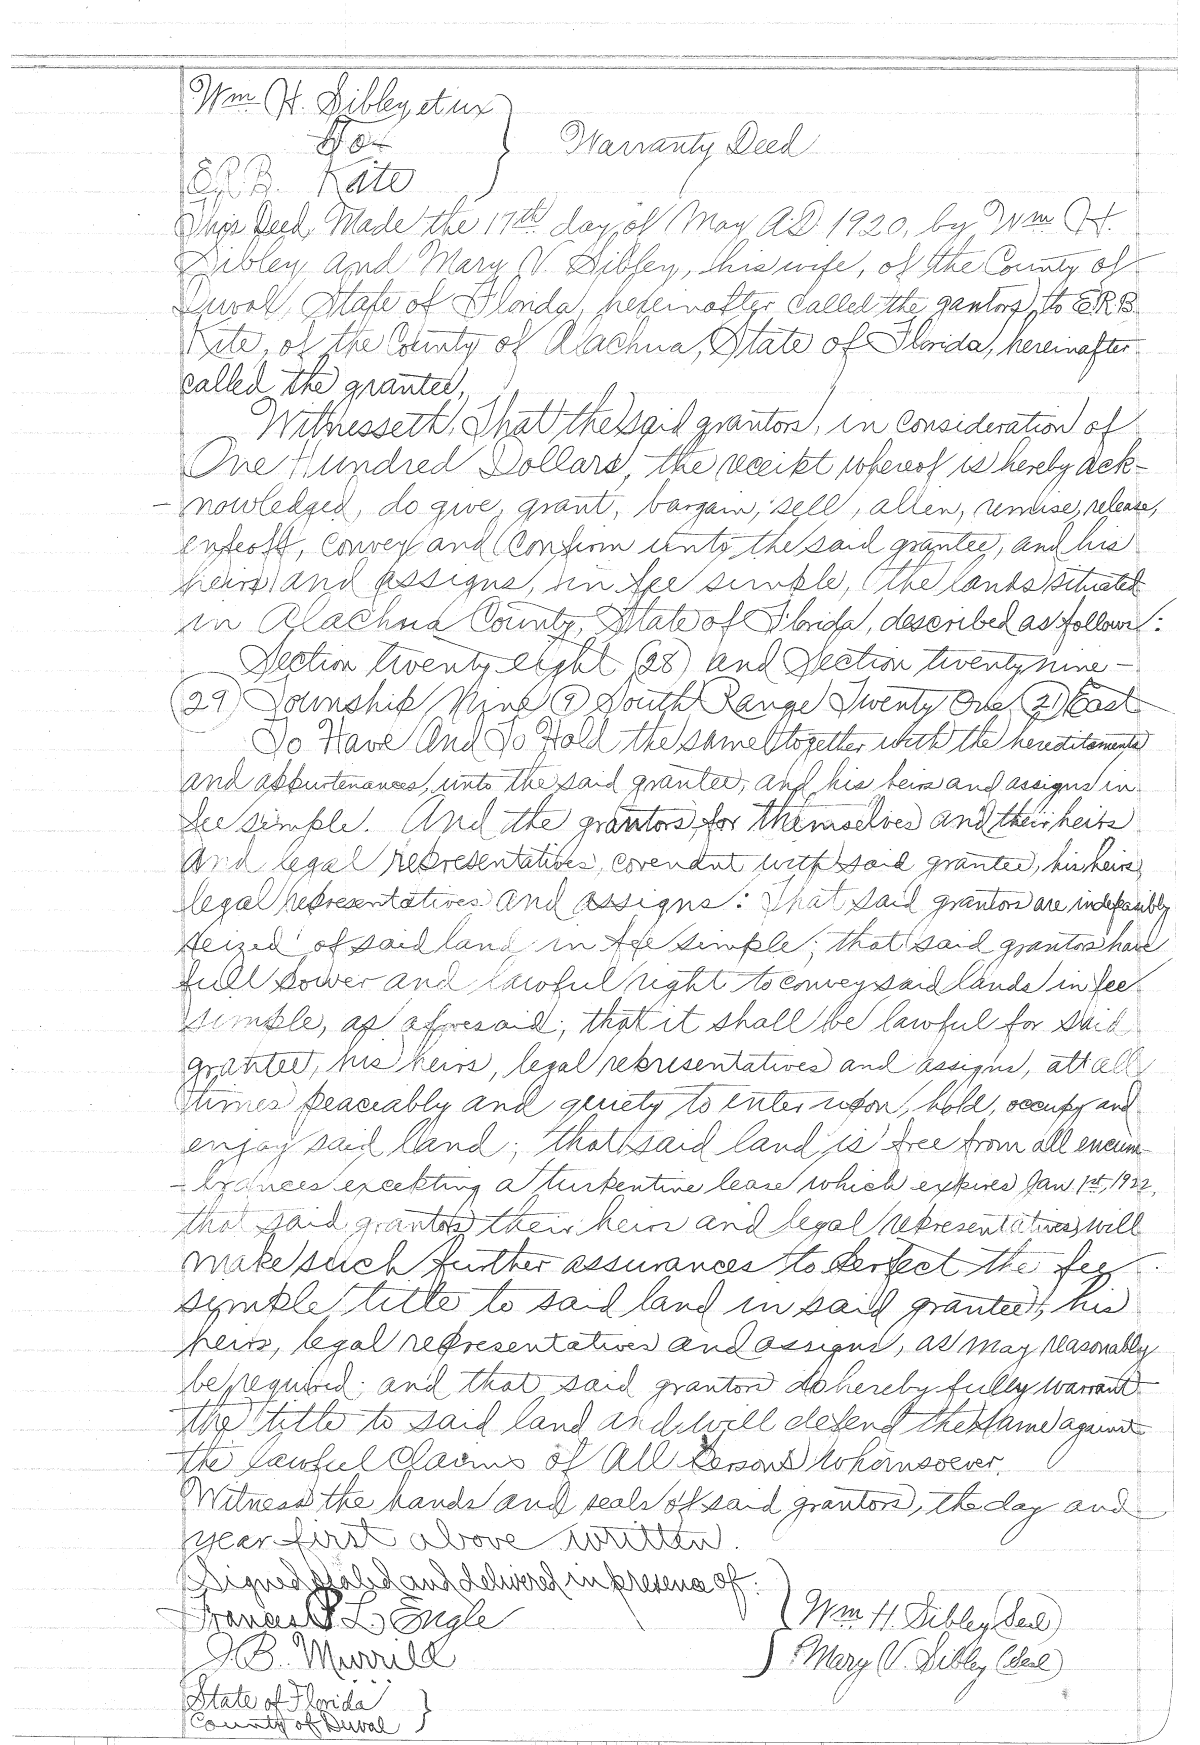 Wm H. Sibley et ux
To
Warranty Deed
E.R.B. Kite
This Deed, Made the 17th day of May A.D. 1920, by Wm H.
Sibley and Mary V. Sibley, his wife, of the County of
Duval, State of Florida, hereinafter called the gantors, to E.R.B.
Kite, of the County of Alachua, State of Florida, hereinafter
called the grantee,
Witnesseth, That the said grantors, in consideration of
One Hundred Dollars, the receipt whereof is hereby ack-
-nowledged, do give, grant, bargain, sell, alien, remise, release,
enfeoff, convey and confirm unto the said grantee, and his
heirs and assigns, in fee simple, the lands situated
in Alachua County, State of Florida, described as follows:
Section twenty eight (28) and Section twenty nine-
(29) Township Nine (9) South Range Twenty One (21) East
To Have And To Hold the same together with the hereditaments
and appurtenances, unto the said grantee, and his heirs and assigns in
fee simple. And the grantors for themselves and their heirs
and legal representatives, covenant with said grantee, his heirs,
legal representatives and assigns: That said grantors are indefeasibly
seized of said land in fee simple; that said grantors have
full power and lawful right to convey said lands in fee
simple, as aforesaid; that it shall be lawful for said
grantee, his heirs, legal representatives and assigns, at all
times peaceably and quiety to enter upon, hold, occupy and
enjoy said land; that said land is free from all encum-
-brances excepting a turpentine lease which expires Jan. 1st, 1922,
that said grantors their heirs and legal representatives, will
make such further assurances to perfect the fee
simple title to said land in said grantee, his
heirs, legal representatives and assigns, as may reasonably
be required; and that said grantors do hereby fully warrant
the title to said land and will defend the same against
the lawful claims of all persons whomsoever.
Witness the hands and seals of said grantors, the day and
year first above written.
Signed sealed and delivered in presence of:
Frances P. L. Engle
Wm H. Sibley (Seal)
J.B. Murrild
Mary V. Sibley (Seal)
State of Florida
County of Duval